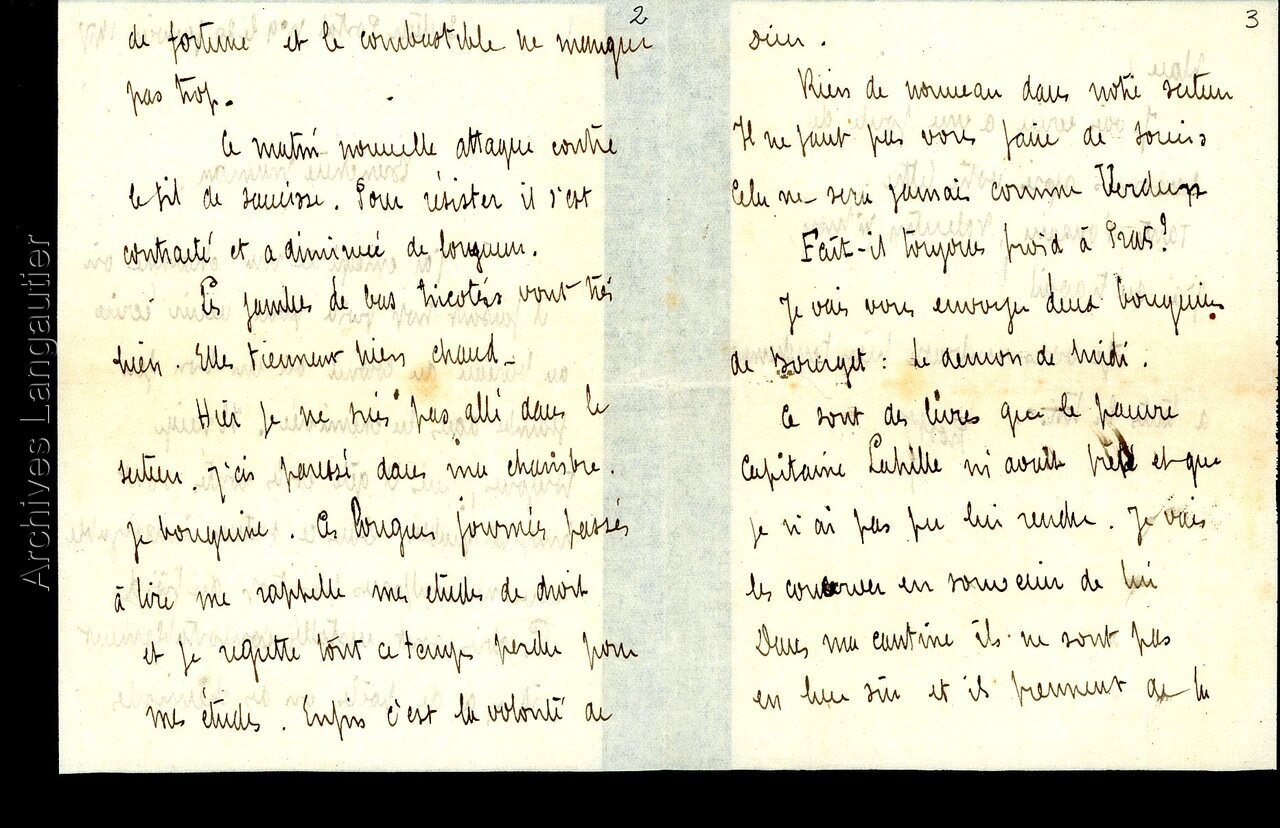 2
de fortune et le combustible ne manque
pas trop.
Ce matin nouvelle attaque contre
le fil de saucisse. Pour résister il s'est
contracté et a diminué de longueur.
Les jambes de bas tricotés vont très
bien. Elles tiennent bien chaud_
Hier je ne suis pas allé dans le
secteur. J'ai paressé dans ma chambre.
je bouquine. Ces longues journées passés
à lire me rappelle mes études de droit
et je regrette tout ce temps perdu pour
mes études. Enfin c'est la volonté de
3
Dieu.
Rien de nouveau dans notre secteur
Il ne faut pas vous faire de soucis
Cela ne sera jamais comme Verdun
Fait-il toujours froid à Prats?
Je vais vous envoyer deux bouquins
de Bourget : Le démon de midi.
Ce sont des livres que le pauvre
Capitaine Lahille m'avait prêté et que
je n'ai pas pu lui rendre. Je vais
les conserver en souvenir de lui
Dans ma cantine ils ne sont pas
en lieu sûr et ils prennent de la
Archives Langautier